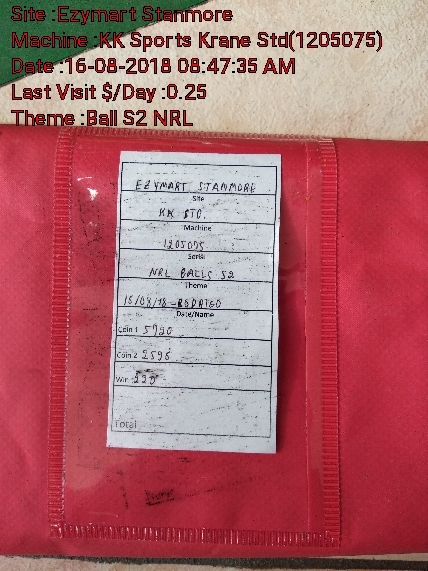 Site :Ezymart Stanmore
Machine :KK Sports Krane Std(1205075)
Date :16-08-2018 08:47:35 AM
Last Visit $/Day :0.25
Theme :Ball S2 NRL
EZYMART STANMORE
Site
KK STD.
Machine
1205075
Serial
NRL BALLS S2
Theme
16/08/18-RODRIGO
Date/Name
Coin 1 5920
Coin 2 2598
Win: 220
Total